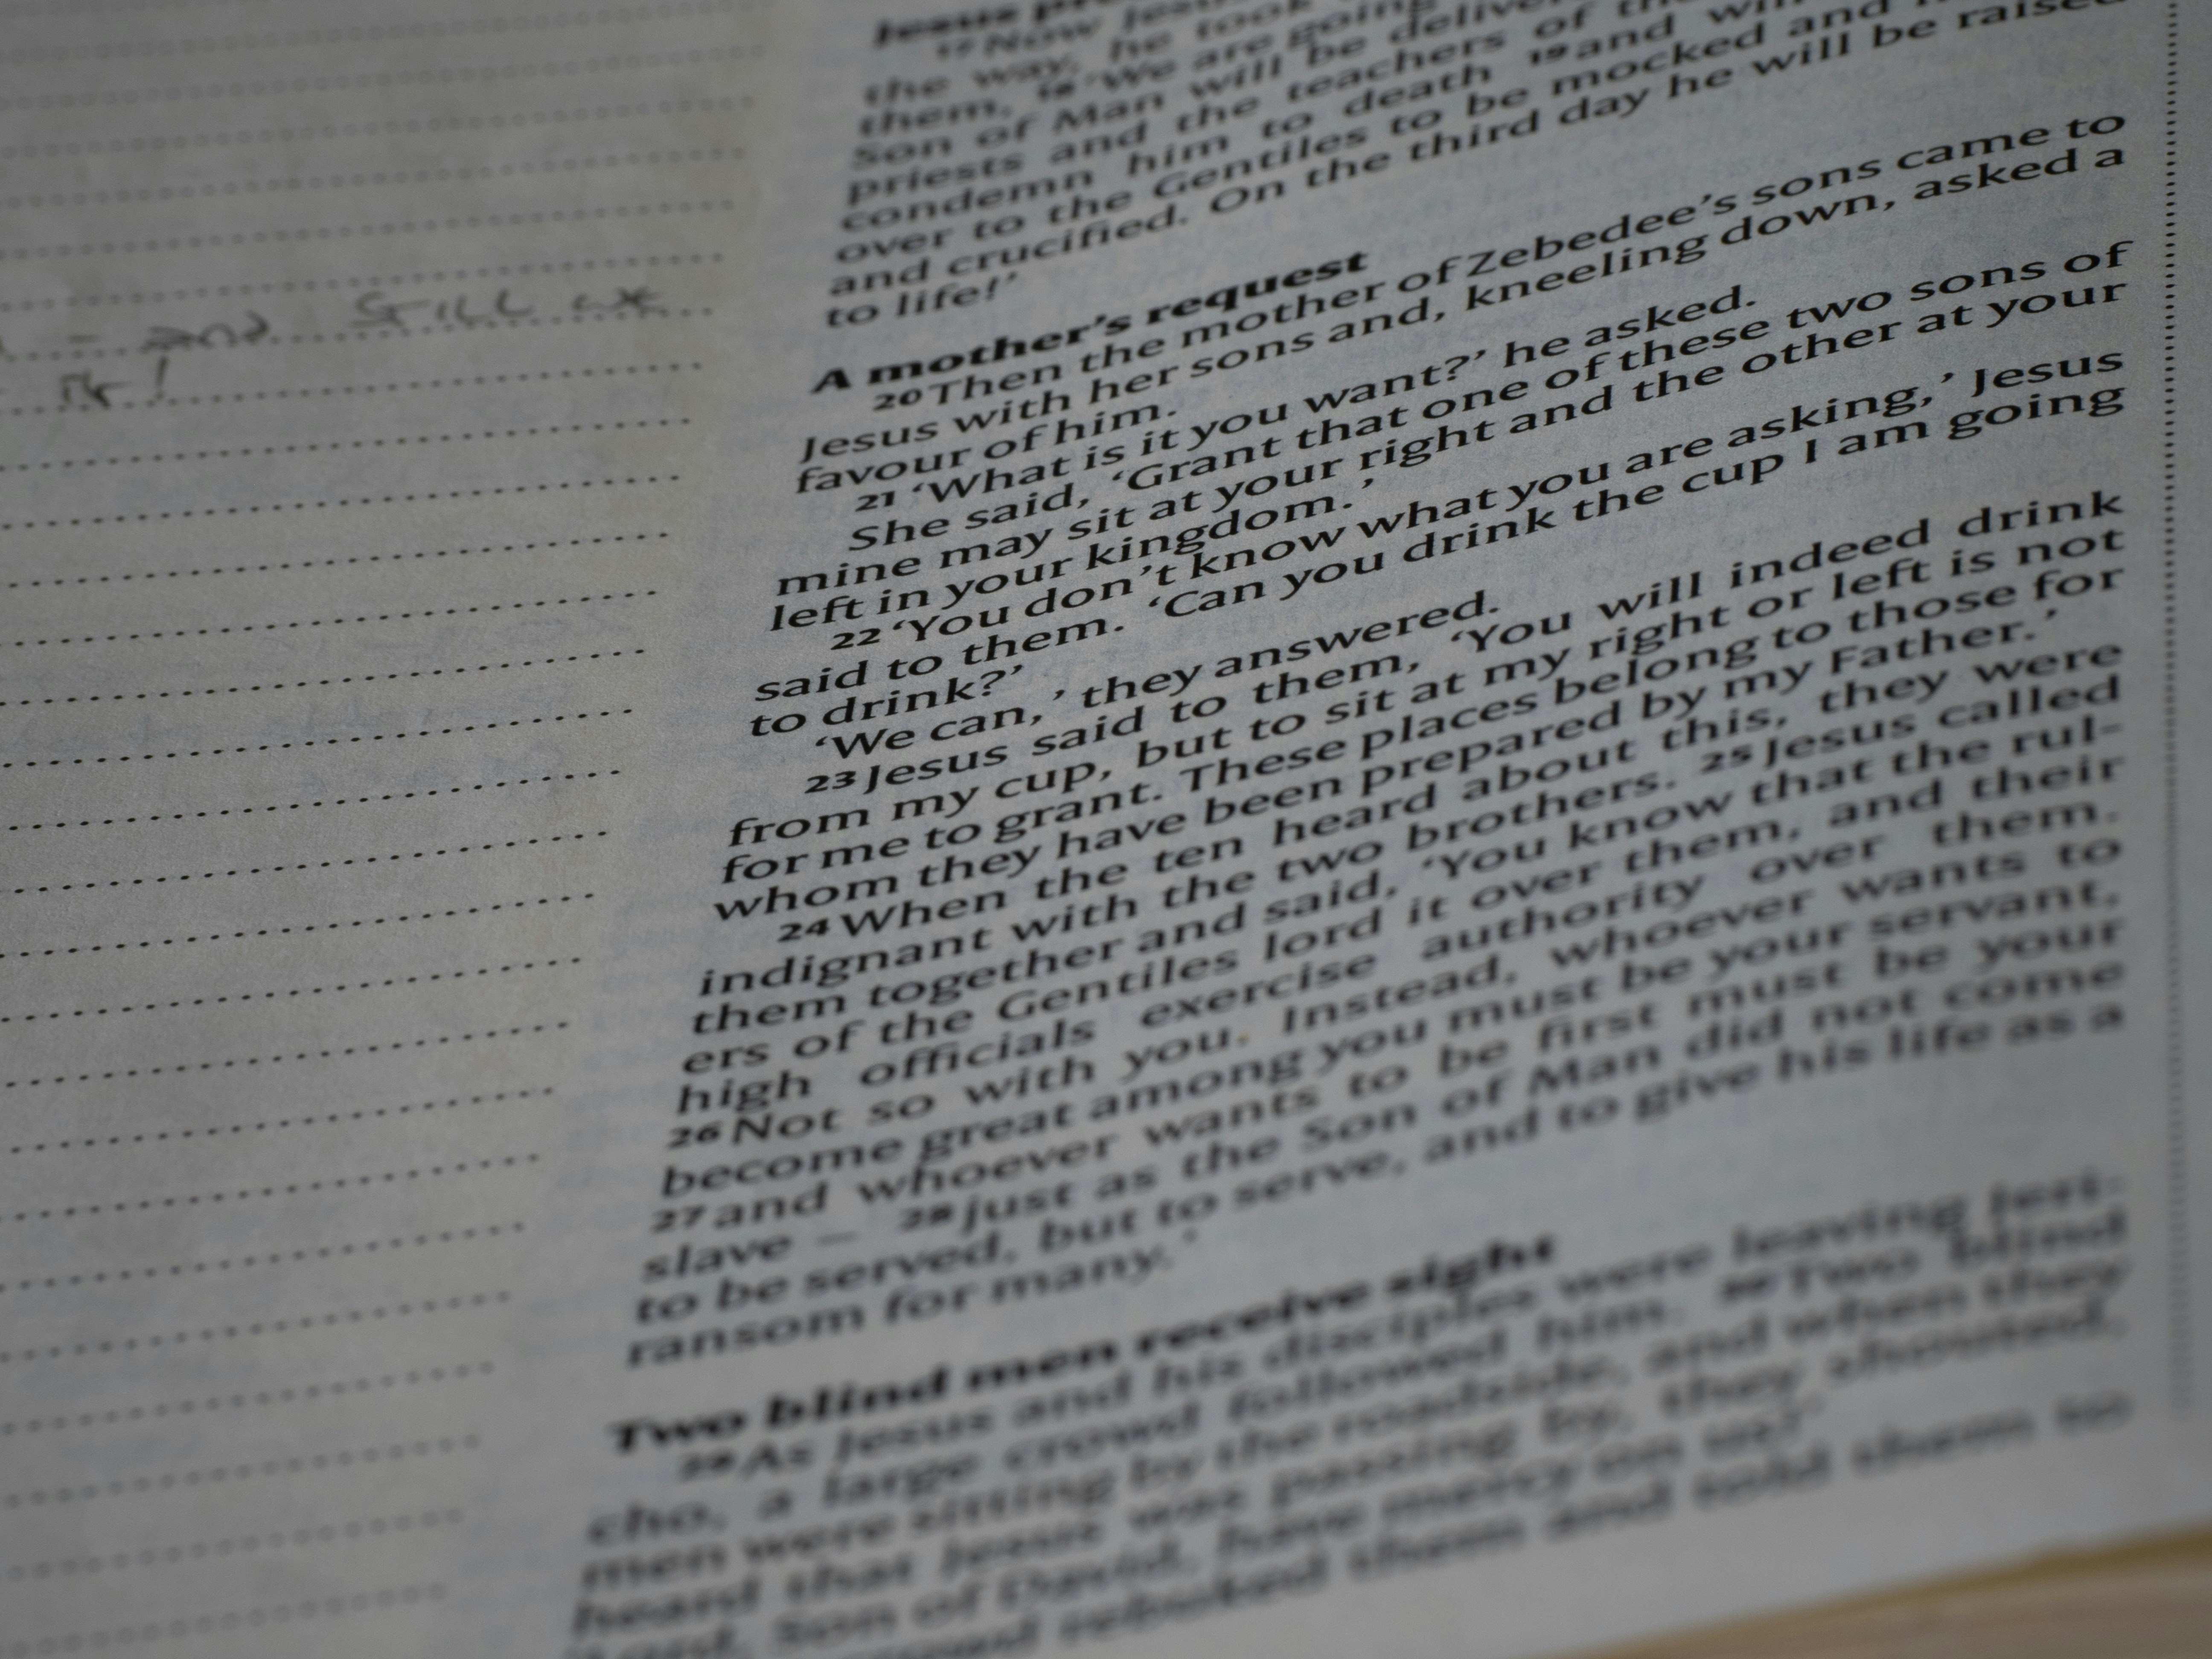 - and STILL we
it!
Jesus
17 Now Jesus
the way, he took
them, 18 'We are going
Son of Man will be
priests and the teachers of
condemn him to death 19 and
over to the Gentiles to be mocked and
and crucified. On the third day he will be raised
to life!'
A mother's request
20 Then the mother of Zebedee's sons came to
Jesus with her sons and, kneeling down, asked a
favour of him.
21 'What is it you want?' he asked.
She said, 'Grant that one of these two sons of
mine may sit at your right and the other at your
left in your kingdom.'
22 'You don't know what you are asking,' Jesus
said to them. 'Can you drink the cup I am going
to drink?'
'We can,' they answered.
23 Jesus said to them, 'You will indeed drink
from my cup, but to sit at my right or left is not
for me to grant. These places belong to those for
whom they have been prepared by my Father.'
24 When the ten heard about this, they were
indignant with the two brothers. 25 Jesus called
them together and said, 'You know that the rul-
ers of the Gentiles lord it over them, and their
high officials exercise authority over them.
26 Not so with you. Instead, whoever wants to
become great among you must be your servant,
27 and whoever wants to be first must be your
slave – 28 just as the Son of Man did not come
to be served, but to serve, and to give his life as a
ransom for many.'
Two blind men receive sight
29 As Jesus and his disciples were leaving Jeri-
cho, a large crowd followed him. 30 Two blind
men were sitting by the roadside, and when they
heard that Jesus was passing by, they shouted,
'Lord, Son of David, have mercy on us!'
crowd rebuked them and told them to